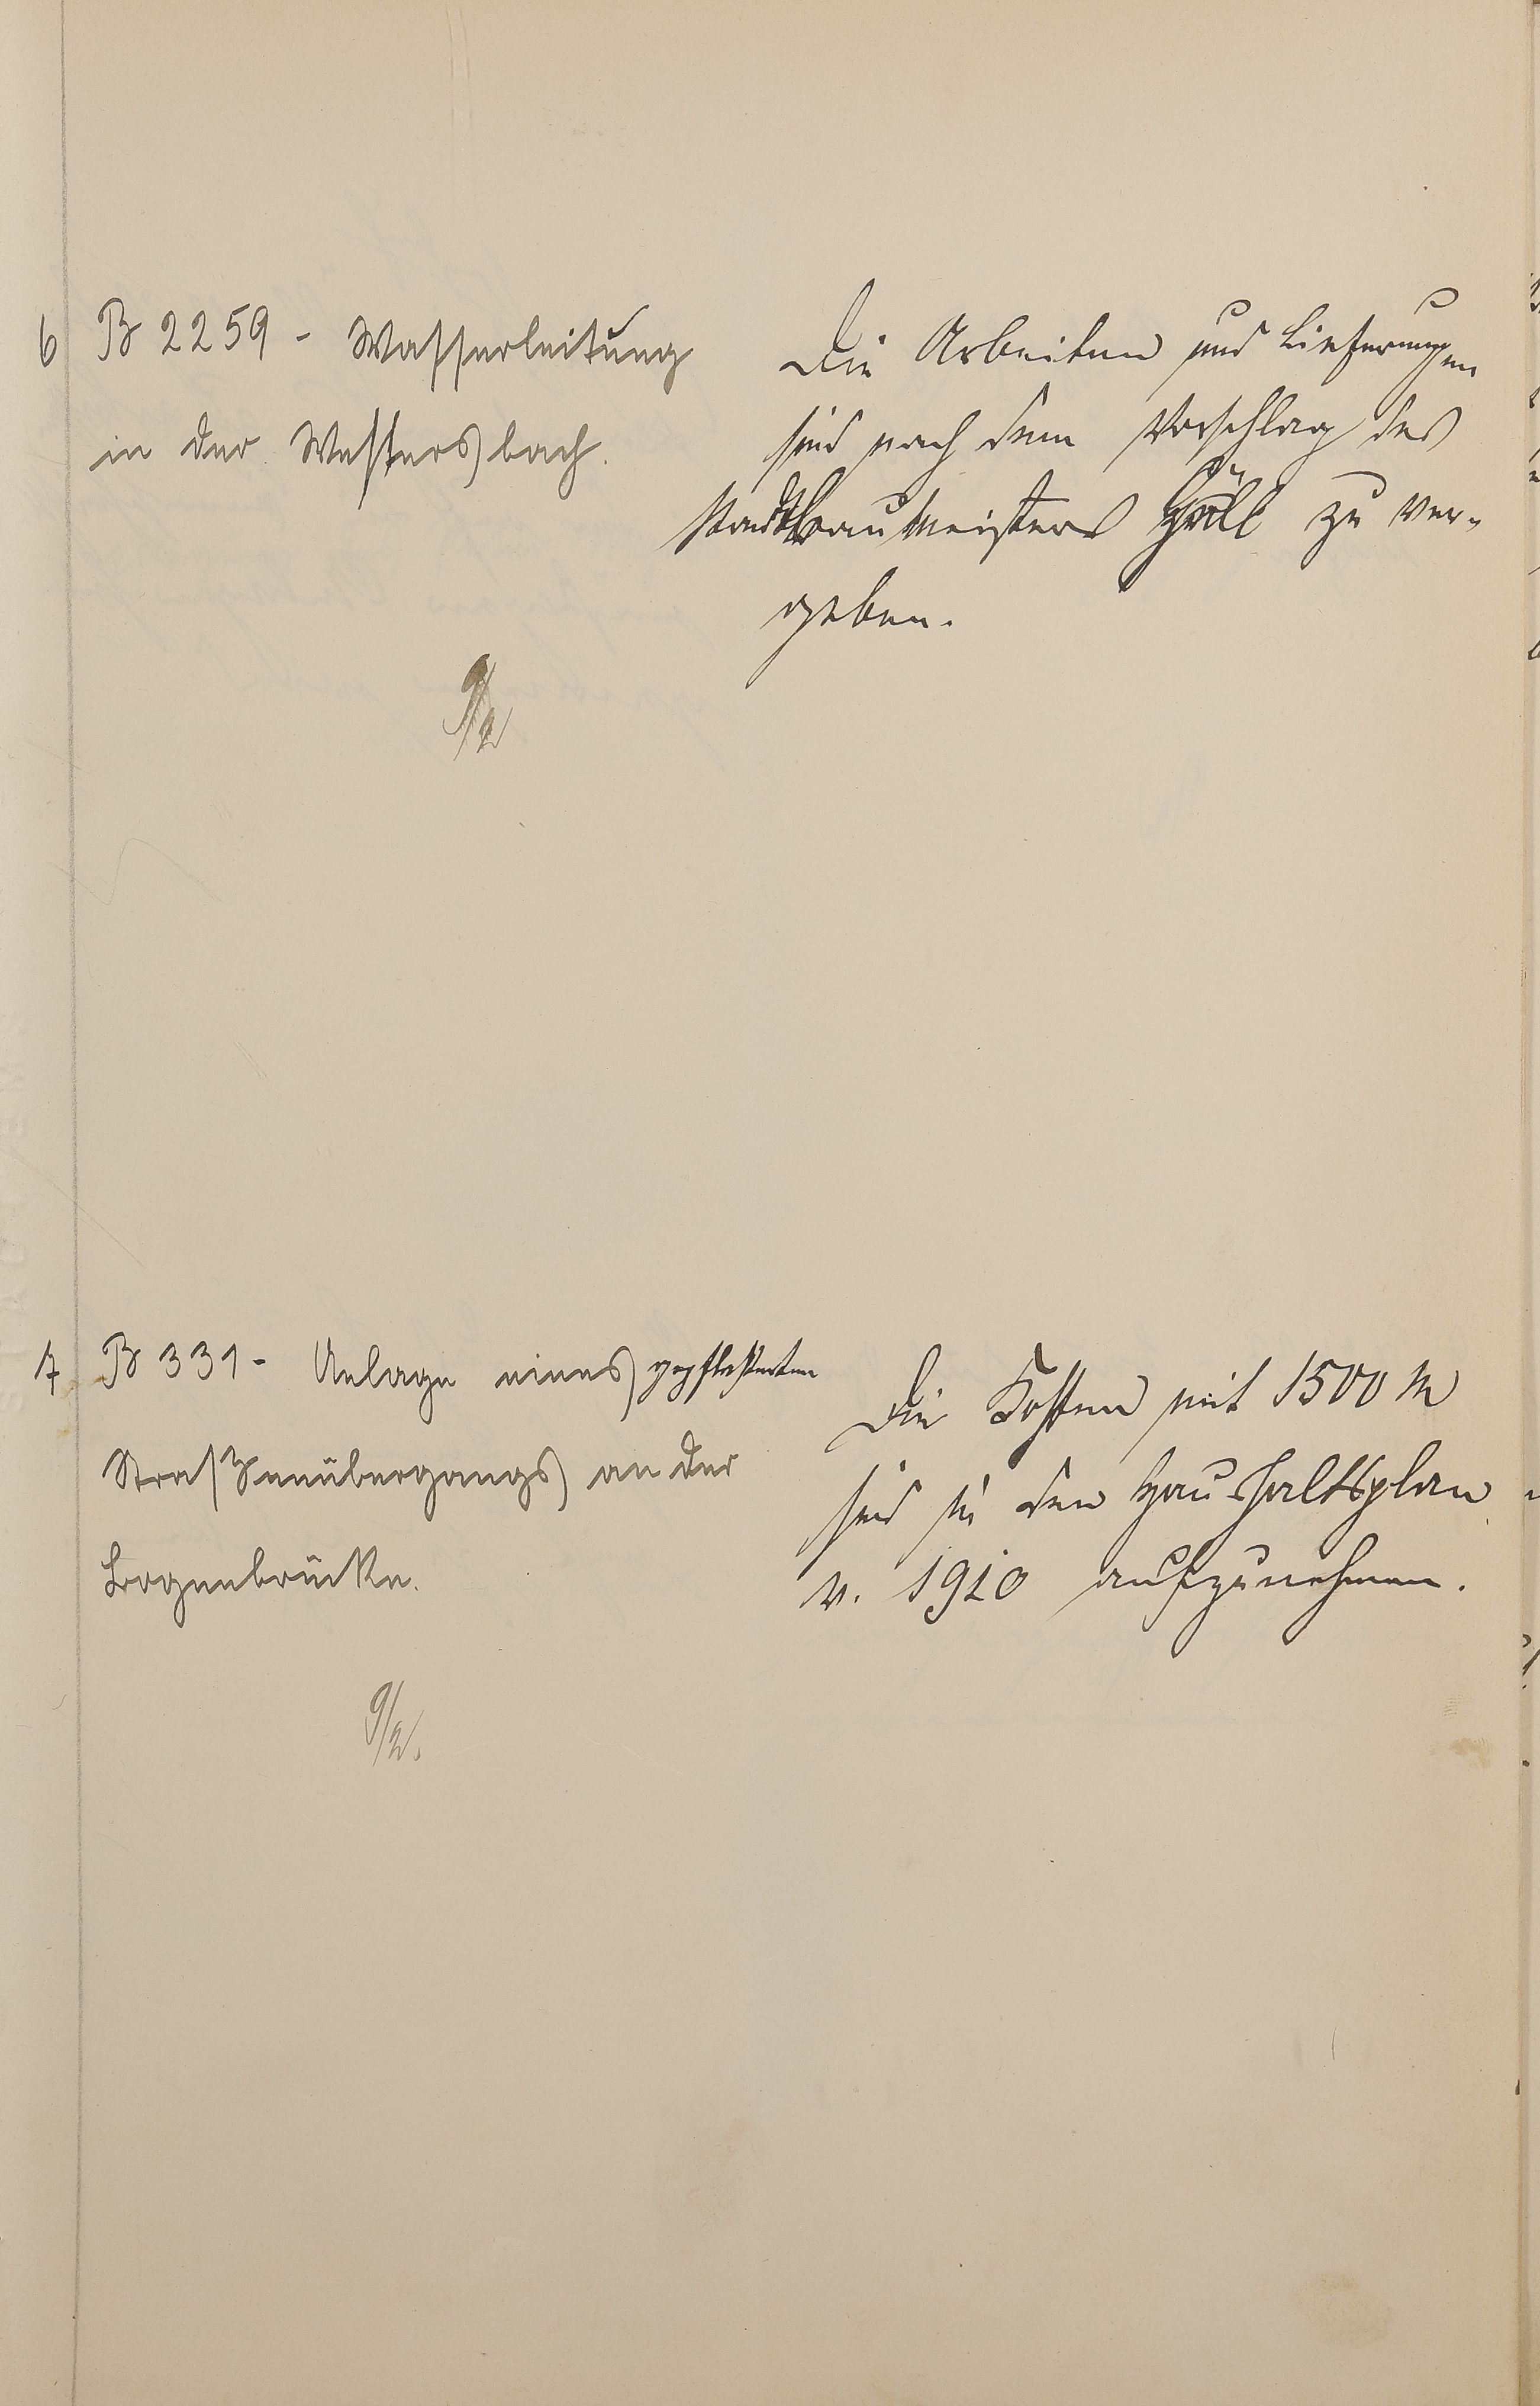 6 B 2259 - Wasserleitung
in der Westersbach.
Die Arbeiten und Lieferungen
sind nach dem Vorschlag des
Stadtbaumeisters zu ver-
geben.
9/2
7 B 331 - Anlage eines gepflasterten
Straßenübergangs an der
Bogenbrücke.
Die Kosten mit 1500 M
sind in den Haushaltsplan
v. 1910 aufzunehmen.
9/2.